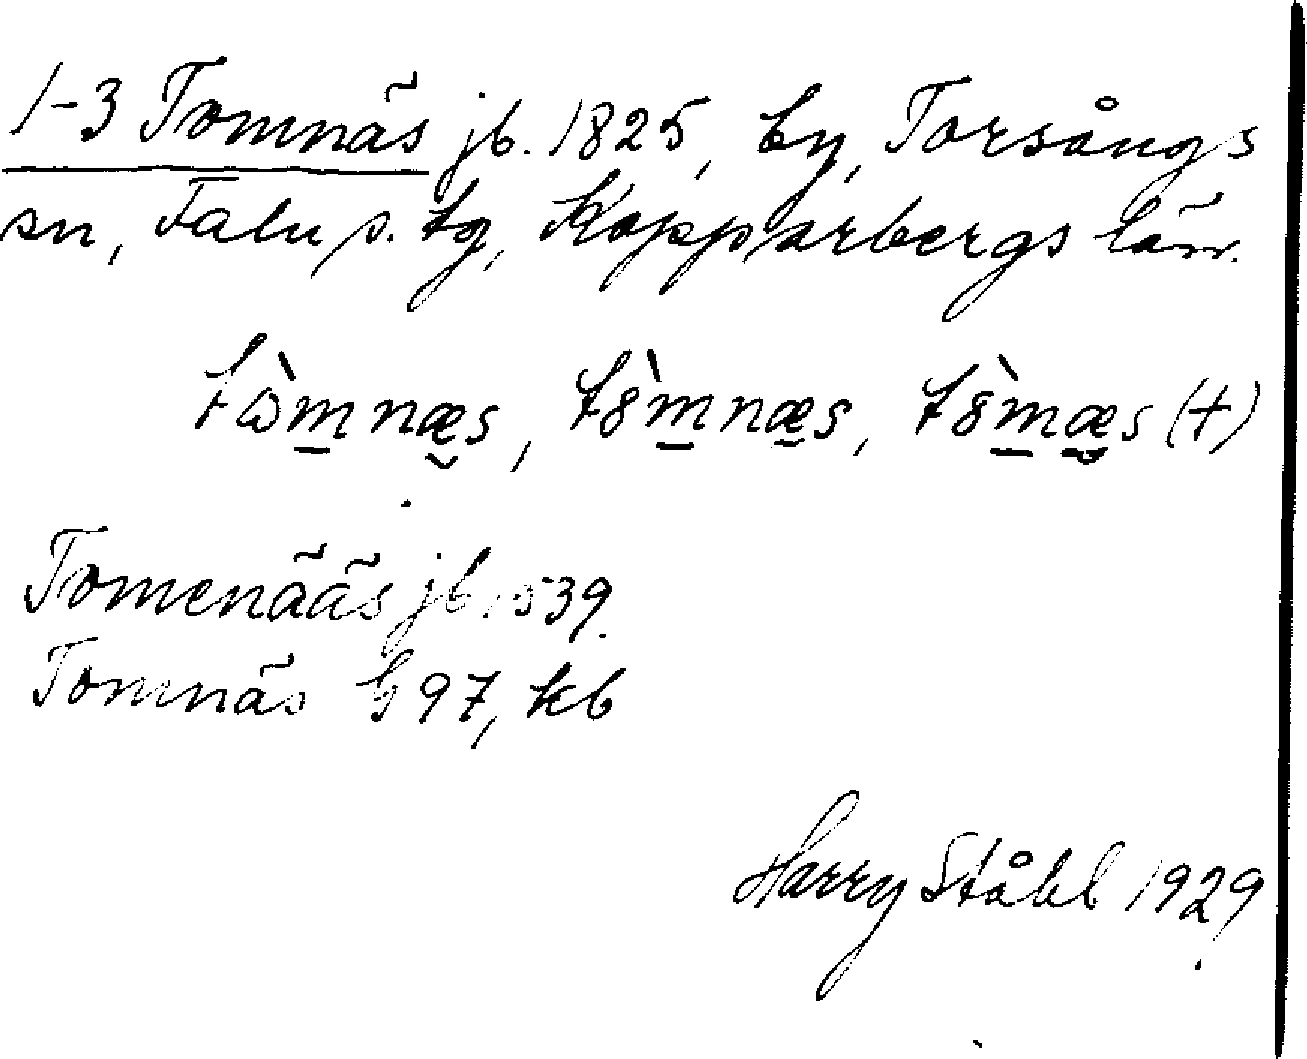 1-3 Tomnäs jb. 1825, by, Torsångs
sn, Falu s. tg, Kopparbergs län.
tὼmnæs, t8̀mnæs, t8̀mæs (+)
Tomenääs jb 1539.
Tomnäs G 97, kb
Harry Ståhl 1929.